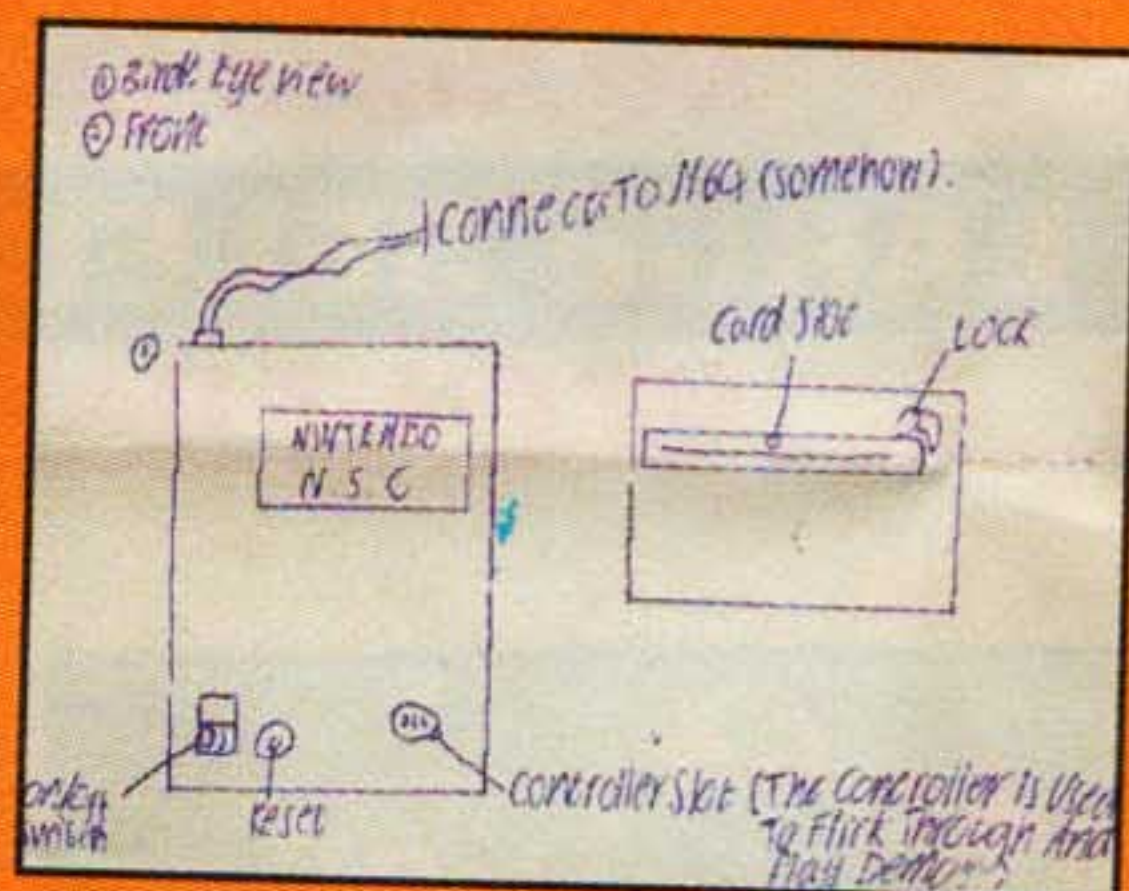 ① Birds Eye view
② Front
Connects TO N64 (somehow).
Card Slot
LOCK
①
NINTENDO
N S C
on/off
switch
Reset
Controller Slot (The Controller is Used
To Flick Through And
Play Demos)